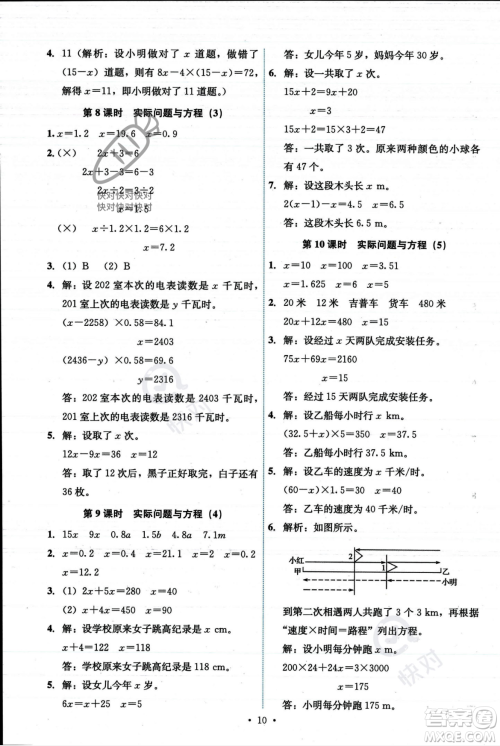 4. 11(解析：设小明做对了 x 道题，做错了
(15－x)道题，则有 8x－4×(15－x)＝72，
解得 x＝11，所以小明做对了 11 道题。)
第 8 课时 实际问题与方程(3)
1. x＝1.2 x＝19.6 x＝0.9
2. (×) 2x＋3＝6
2x＋3－3＝6－3
2x÷2＝3÷2
x＝1.5
(×) x÷1.2×1.2＝6×1.2
x＝7.2
4. (1) B (2) B
4. 解：设 202 室本次的电表读数是 x 千瓦时，
201 室上次的电表读数为 y 千瓦时。
(x－2258)×0.58＝84.1
x＝2403
(2436－y)×0.58＝69.6
y＝2316
答：202 室本次的电表读数是 2403 千瓦
时，201 室上次的电表读数是 2316 千瓦时。
5. 解：设取了 x 次。
12x－9x＝36 x＝12
答：取了 12 次后，黑子正好取完，白子还有
36 枚。
第 9 课时 实际问题与方程(4)
1. 15x 9x 0.8a 1.5a 0.4a
2. x＝0.2 x＝0.4 x＝21.2 x＝0.15
3. (1) 2x＋5x＝210
(2) x＋4x＝180
4. 解：设学校原来女子跳高纪录是 x cm。
x＋4＝122 x＝118
答：学校原来女子跳高纪录是 118 cm。
5. 解：设女儿今年 x 岁。
6x＝x＋25 x＝5
答：女儿今年 5 岁，妈妈今年 30 岁。
6. 解：设一共取了 x 次。
15x＋2＝9x＋20
x＝3
15x＋2＝15×3＋2＝47
答：一共取了 3 次。原来两种颜色的小球各
有 47 个。
7. 解：设这段木头长 x m。
2(x－1)＝x＋4.5 x＝6.5
答：这段木头长 6.5 m。
第 10 课时 实际问题与方程(5)
1. x＝10 x＝3.51
x＝1.625 x＝8
2. 20米 12米 吉普车 货车 480米
20x＋12x＝480
3. 解：设经过 x 天两队完成安装任务。
75x＋69x＝2160
x＝15
答：经过 15 天两队完成安装任务。
4. 解：设乙船每小时行 x km。
(32.5＋x)×5＝330 x＝33.5
答：乙船每小时行 33.5 km。
5. 解：设乙车的速度为 x 千米/时。
(60＋x)×5＝550 x＝50
答：乙车的速度为 50 千米/时。
6. 解析：如图所示。
2
小红
甲
1
乙
小明
到第二次相遇两人共跑了 3 个 3 km，根据
“速度×时间＝路程”列出方程。
解：设小明每分钟跑 x m。
200×24＋24x＝3×3000
x＝175
答：小明每分钟跑 175 m。
10
快对
快对快对
快对快对
快对
快对
答案圈
MXQE.COM